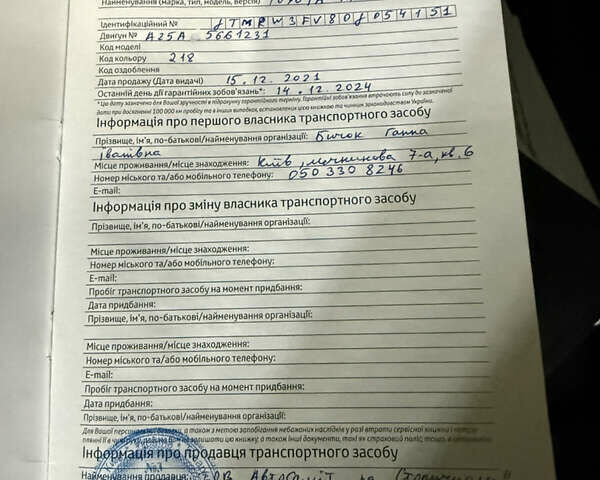 Найменування (марка, тип, модель, версія)
Ідентифікаційний № JTMRW3FV80J054151
Двигун № A25A 5661231
Код моделі
Код кольору 218
Код оздоблення
Дата продажу (Дата видачі) 15.12.2021
Останній день дії гарантійних зобов'язань*: 14.12.2024
*Цю дату зазначено для Вашої зручності в підрахунку гарантійного терміну. Гарантійні зобов'язання втрачають силу до зазначеної
дати при досягненні 100 000 км пробігу та в інших випадках, встановлених цією книжкою та чинним законодавством України.
Інформація про першого власника транспортного засобу
Прізвище, ім'я, по-батькові/найменування організації: Бичок Ганна
Іванівна
Місце проживання/місце знаходження: Київ, Мечникова 7-а, кв. 6
Номер міського та/або мобільного телефону: 050 330 8246
E-mail:
Інформація про зміну власника транспортного засобу
Прізвище, ім'я, по-батькові/найменування організації:
Місце проживання/місце знаходження:
Номер міського та/або мобільного телефону:
E-mail:
Пробіг транспортного засобу на момент придбання:
Дата придбання:
Прізвище, ім'я, по-батькові/найменування організації:
Місце проживання/місце знаходження:
Номер міського та/або мобільного телефону:
E-mail:
Пробіг транспортного засобу на момент придбання:
Дата придбання:
Прізвище, ім'я, по-батькові/найменування організації:
Для Вашої персональної безпеки, а також з метою запобігання небажаних наслідків у разі втрати сервісної книжки і
залишати цю книжку, а також інші документи, такі як страховий поліс, тощо, в
Інформація про продавця транспортного засобу
Найменування продавця: